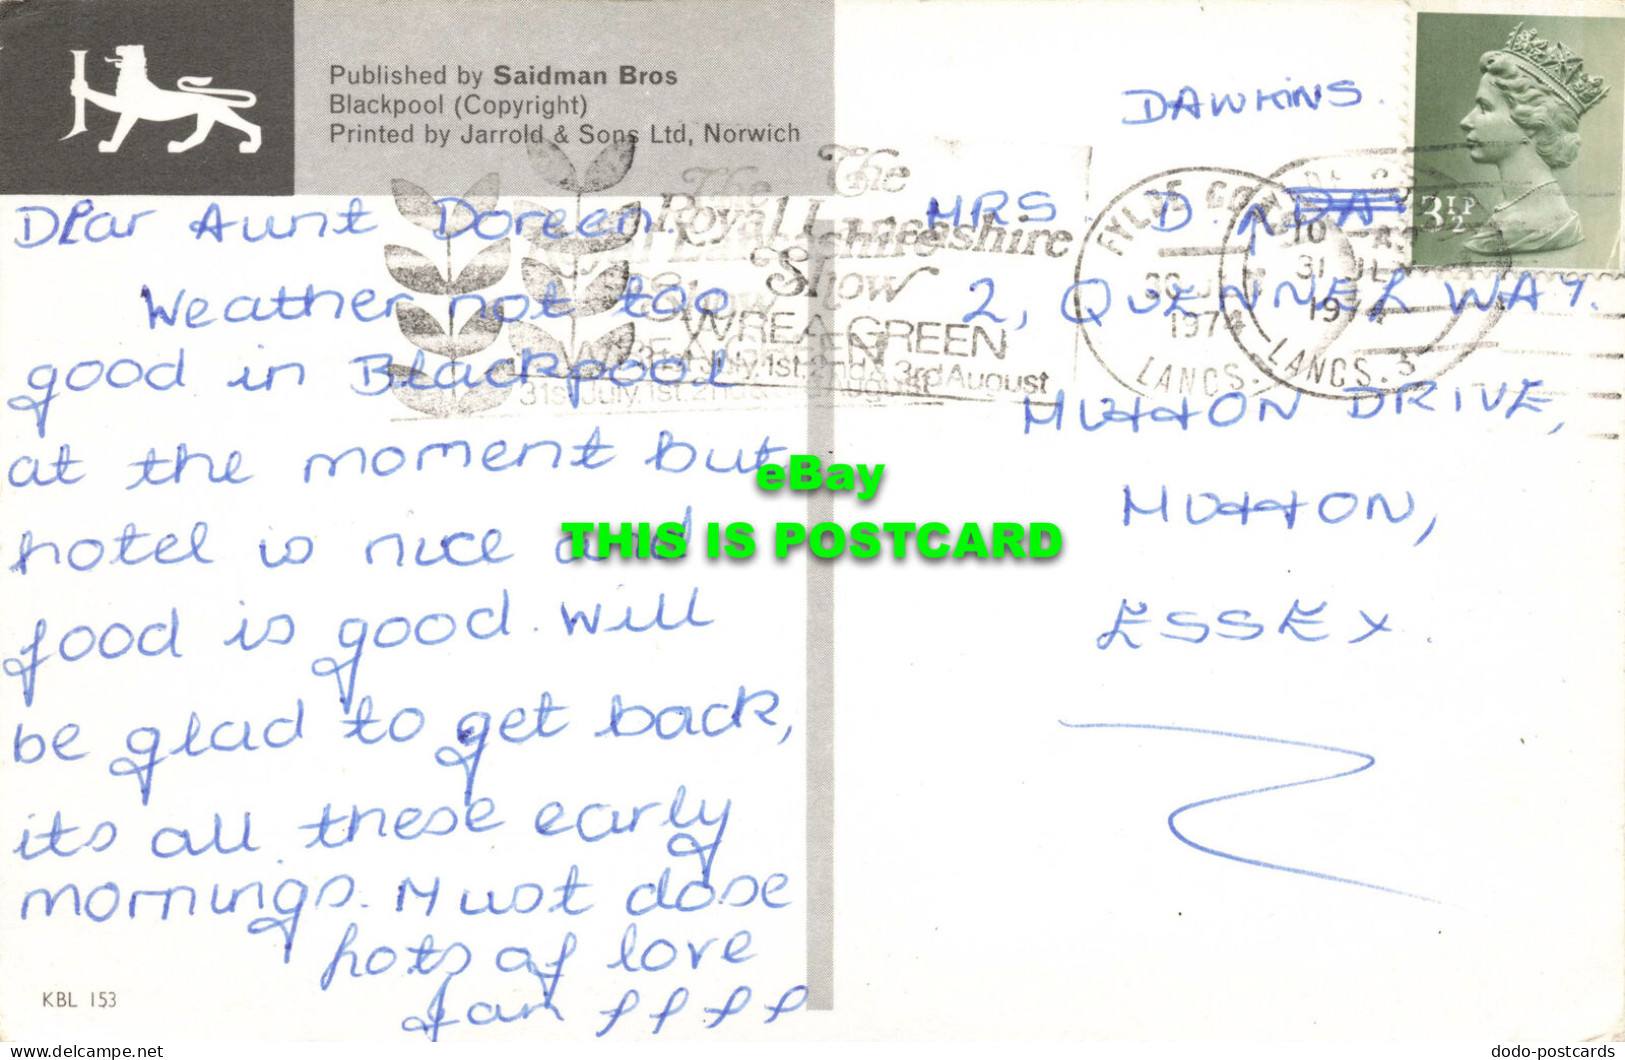 Published by Saidman Bros
Blackpool (Copyright)
Printed by Jarrold & Sons Ltd, Norwich
Dear Aunt Doreen.
Weather not too
good in Blackpool
at the moment but
hotel is nice and
food is good. Will
be glad to get back,
its all these early
mornings. Must close
hots of love
KBL 153
The Royal Lancashire
Show
WREA GREEN
31st July, 1st, 2nd & 3rd August
FYLDE COAST
30 JLY
1974
LANCS.
10
31 JLY
1974
LANCS. 3
3½P
DAWKINS.
MRS. D.
2, QUENNEL WAY.
HUTTON DRIVE,
HUTTON,
ESSEX.
eBay
THIS IS POSTCARD
delcampe.net
dodo-postcards